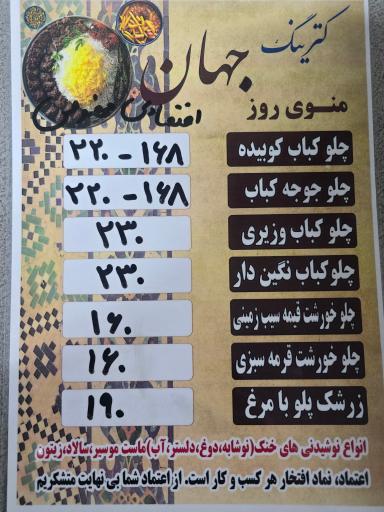 کترینگ
جهان
منوی روز
اقتصادی معمولی
چلو کباب کوبیده ۱۶۸ - ۲۲۰
چلو جوجه کباب ۱۶۸ - ۲۲۰
چلو کباب وزیری ۲۳۰
چلو کباب نگین دار ۲۳۰
چلو خورشت قیمه سیب زمینی ۱۶۰
چلو خورشت قرمه سبزی ۱۶۰
زرشک پلو با مرغ ۱۹۰
انواع نوشیدنی های خنک(نوشابه،دوغ،دلستر،آب)ماست موسیر،سالاد،زیتون
اعتماد، نماد افتخار هر کسب و کار است. از اعتماد شما بی نهایت متشکریم